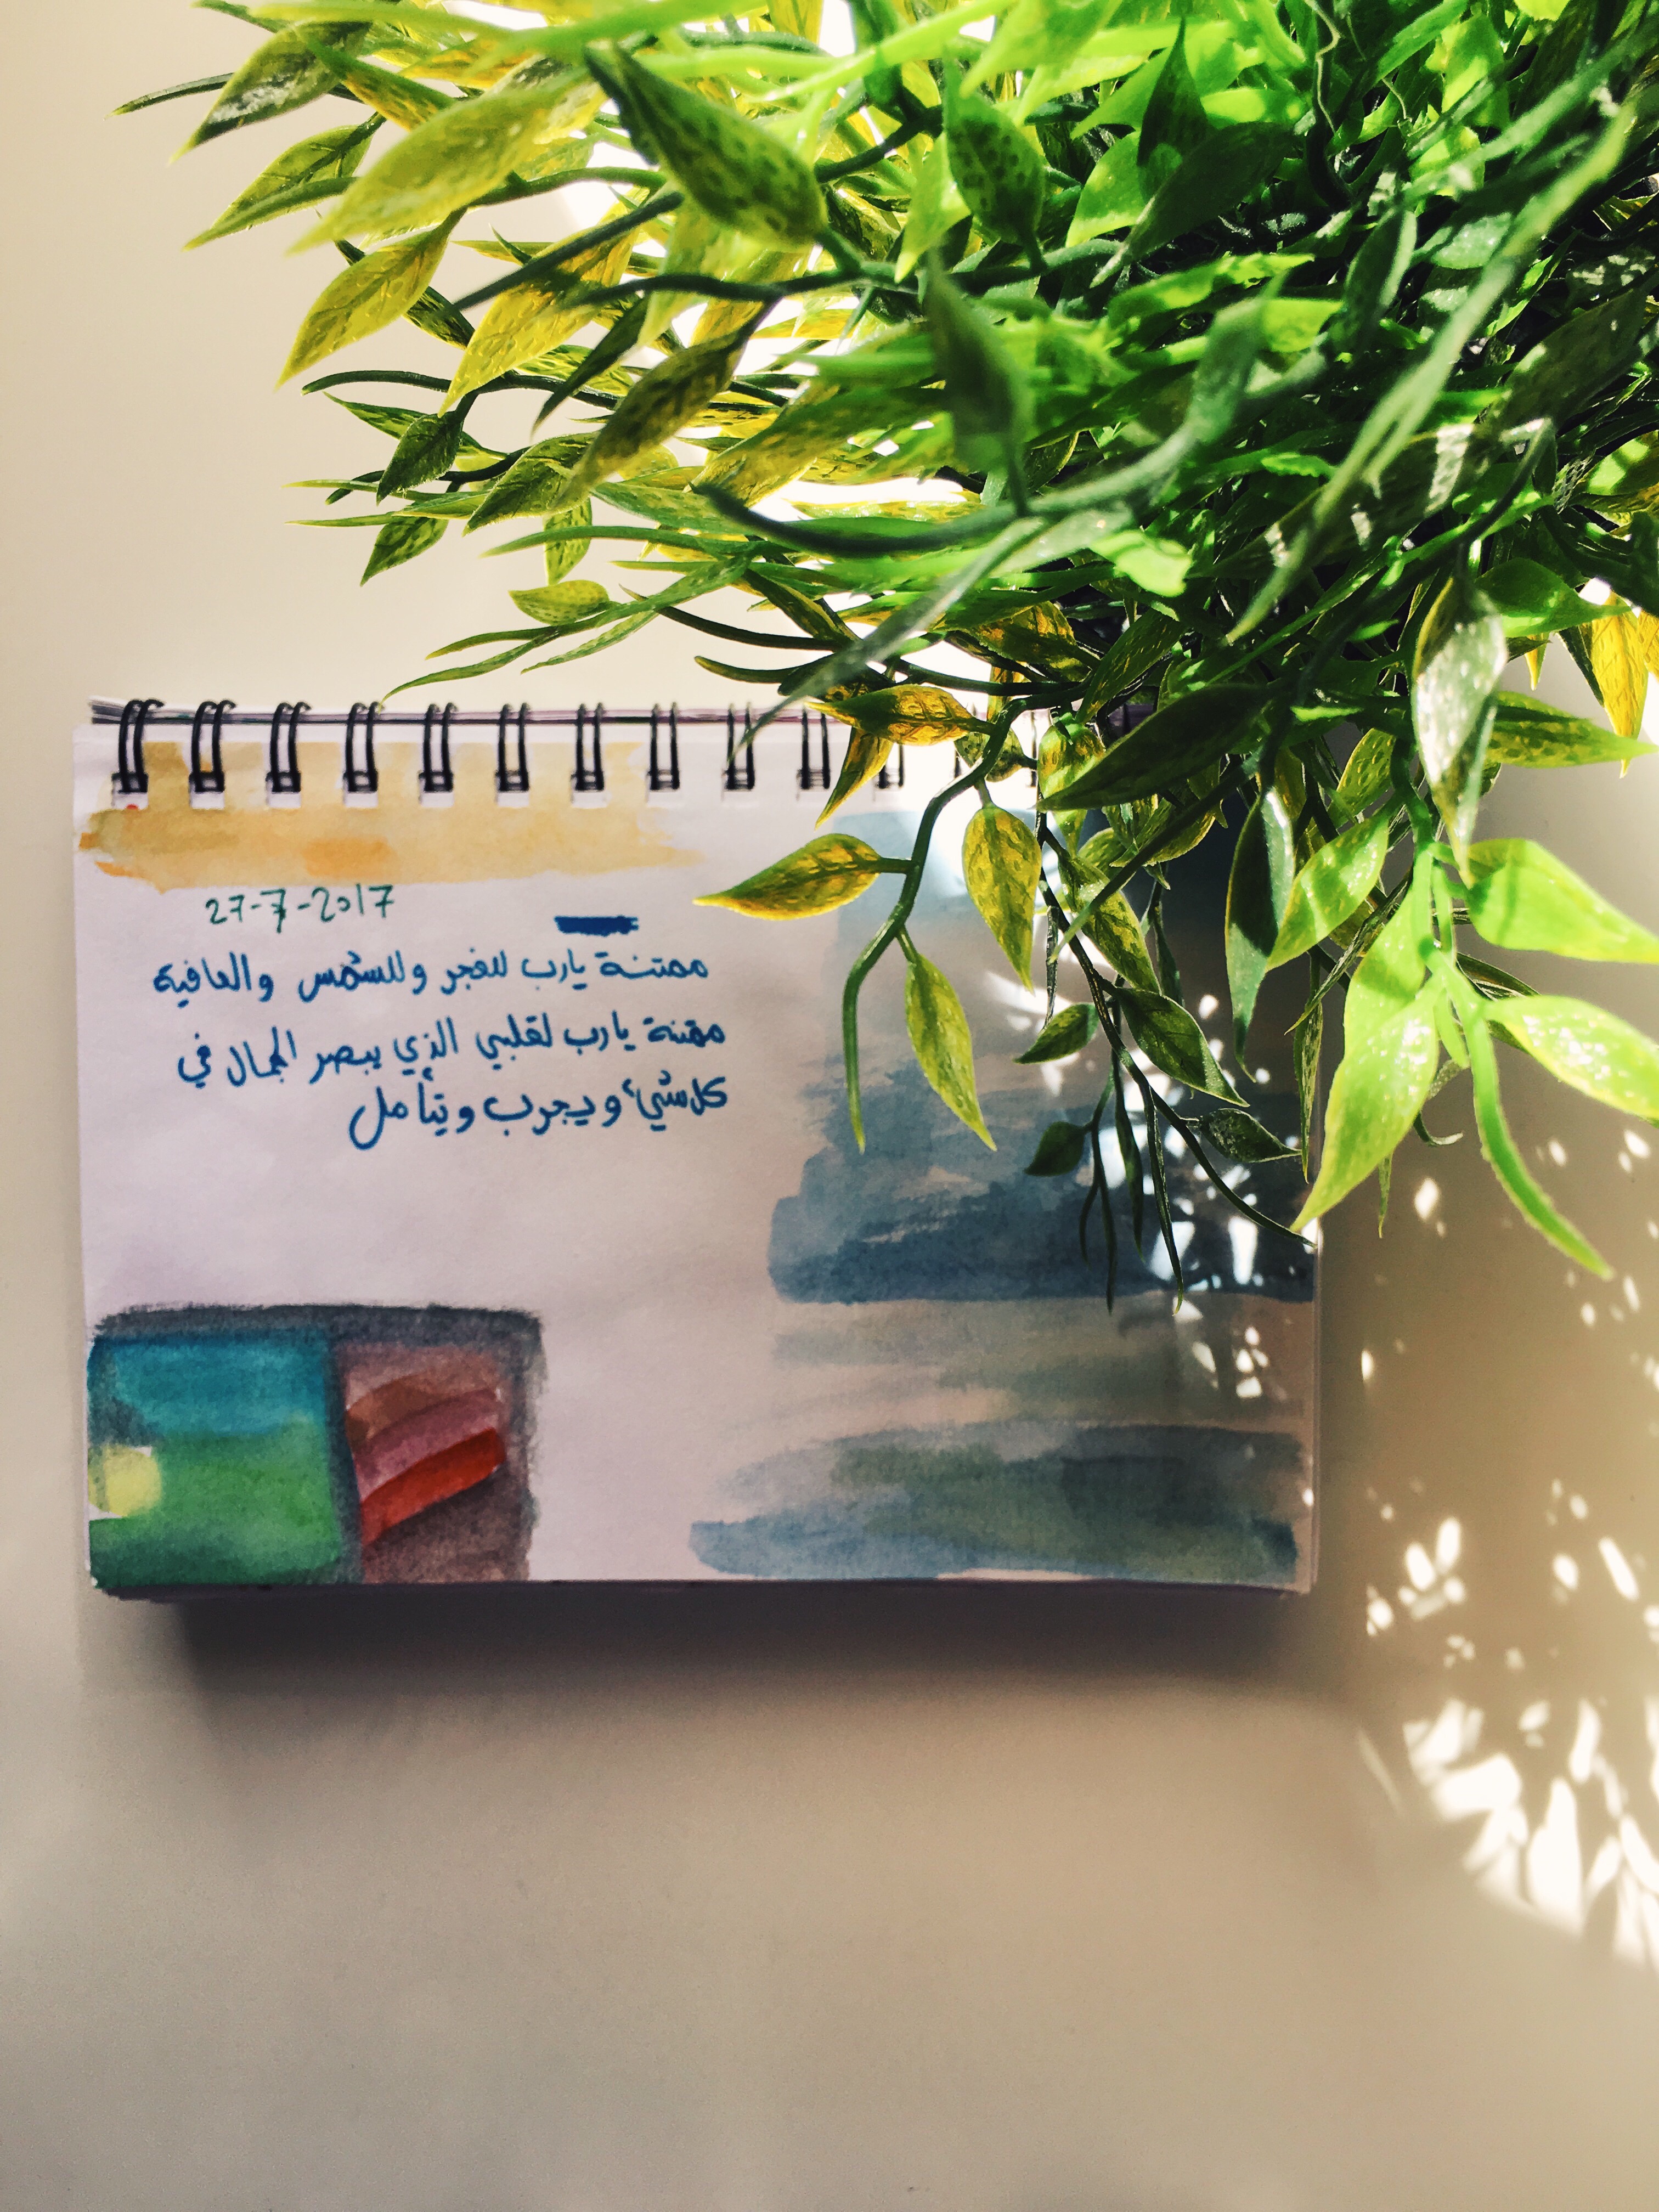 27-7-2017
ممتنة يارب للفجر وللشمس والعافية
ممتنة يارب لقلبي الذي يبصر الجمال في
كل شيء ويجرب ويتأمل